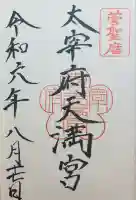 菅聖廟
太宰府天満宮
令和六年八月七日